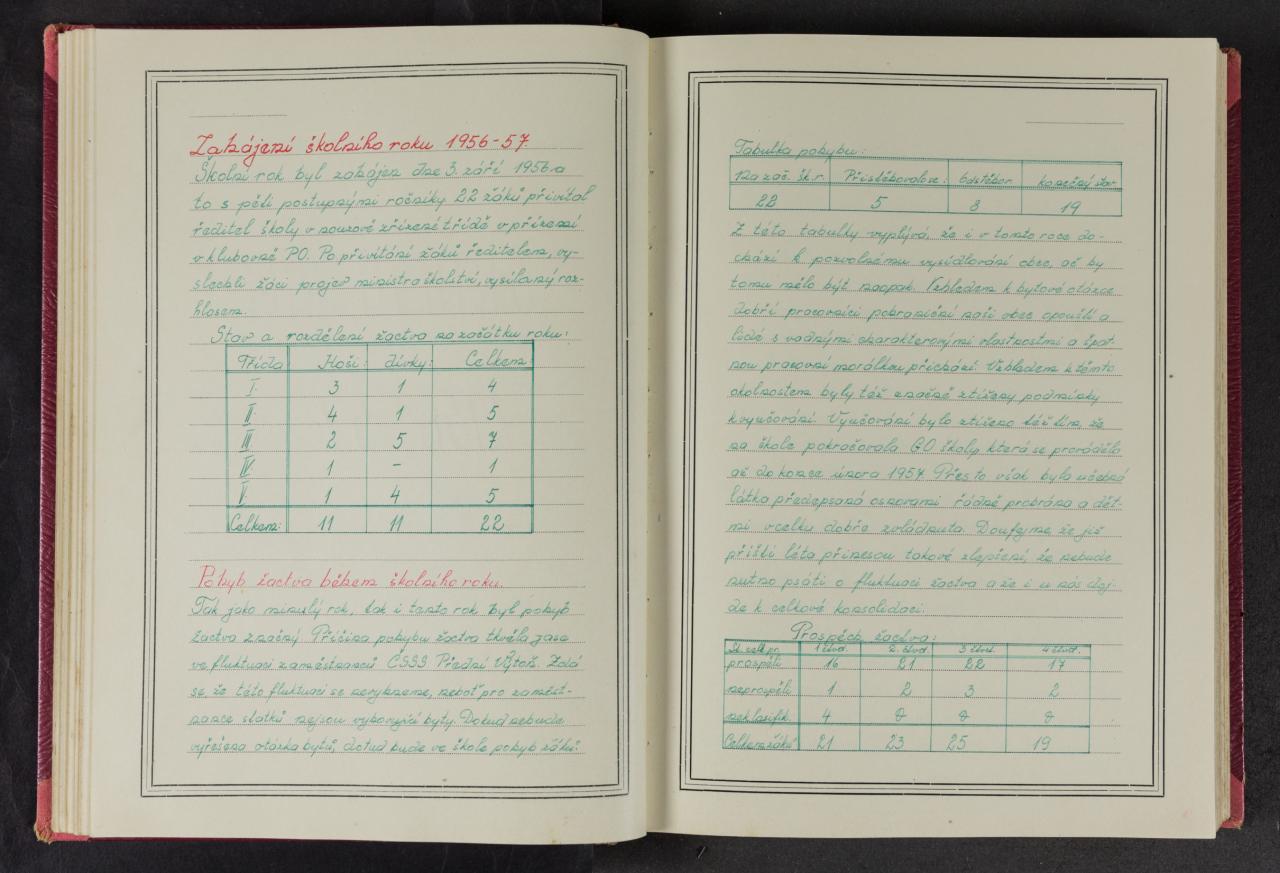 Zahájení školního roku 1956-57.
Školní rok byl zahájen dne 3. září 1956 a
to s pěti postupnými ročníky. 22 žáků přivítal
ředitel školy v nouzově zřízené třídě v přízemí
v klubovně PO. Po přivítání žáků ředitelem, vy-
slechli žáci projev ministra školství, vysílaný roz-
hlasem.
Stav a rozdělení žactva na začátku roku:
Třída: Hoši: dívky: Celkem:
I. 3 1 4
II. 4 1 5
III. 2 5 7
IV. 1 - 1
V. 1 4 5
Celkem: 11 11 22
Pohyb žactva během školního roku.
Tak jako minulý rok, tak i tento rok byl pohyb
žactva značný. Příčina pohybu žactva tkvěla zase
ve fluktuaci zaměstnanců ČSSS Přední Výtoň. Zdá
se, že této fluktuaci se nevyhneme, neboť pro zaměst-
nance statků nejsou vyhovující byty. Dokud nebude
vyřešena otázka bytů, dotud bude ve škole pohyb žáků.
Tabulka pohybu:
Na zač. šk. r. Přistěhovalo se: Odstěhov. konečný stav
22 5 8 19
Z této tabulky vyplývá, že i v tomto roce do-
chází k pozvolnému vysídlování obce, ač by
tomu mělo být naopak. Vzhledem k bytové otázce
dobří pracovníci pohraniční naši obec opouští a
lidé s vadnými charakterovými vlastnostmi a špat-
nou pracovní morálkou přichází. Vzhledem k těmto
okolnostem byly též značně ztíženy podmínky
k vyučování. Vyučování bylo ztíženo též tím, že
na škole pokračovala GO školy, která se prováděla
až do konce února 1957. Přes to však byla učebná
látka předepsaná osnovami řádně probrána a dět-
mi vcelku dobře zvládnuta. Doufejme, že již
příští léta přinesou takové zlepšení, že nebude
nutno psáti o fluktuaci žactva a že i u nás doj-
de k celkové konsolidaci.
Prospěch žactva:
St. celk. pr. 1 čtvrt. 2. čtvrt. 3 čtvrt. 4 čtvrt.
prospěli 16 21 22 17
neprospěli 1 2 3 2
neklasifik. 4 0 0 0
Celkem žáků 21 23 25 19